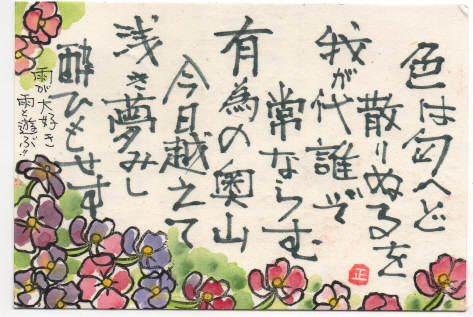 色は匂へど
散りぬるを
我が代誰ぞ
常ならむ
有為の奥山
今日越えて
浅き夢みし
酔ひもせす
雨が大好き
雨と遊ぶ!!
正